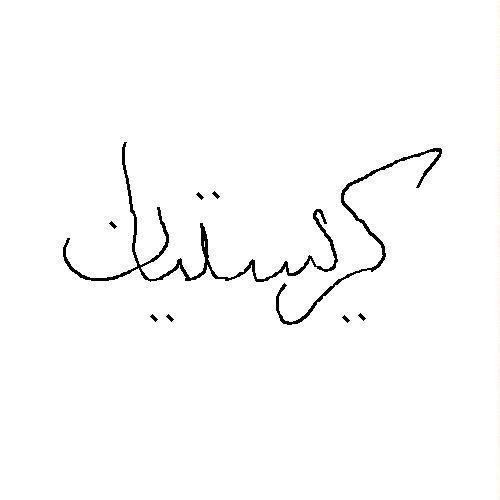 كريستيان